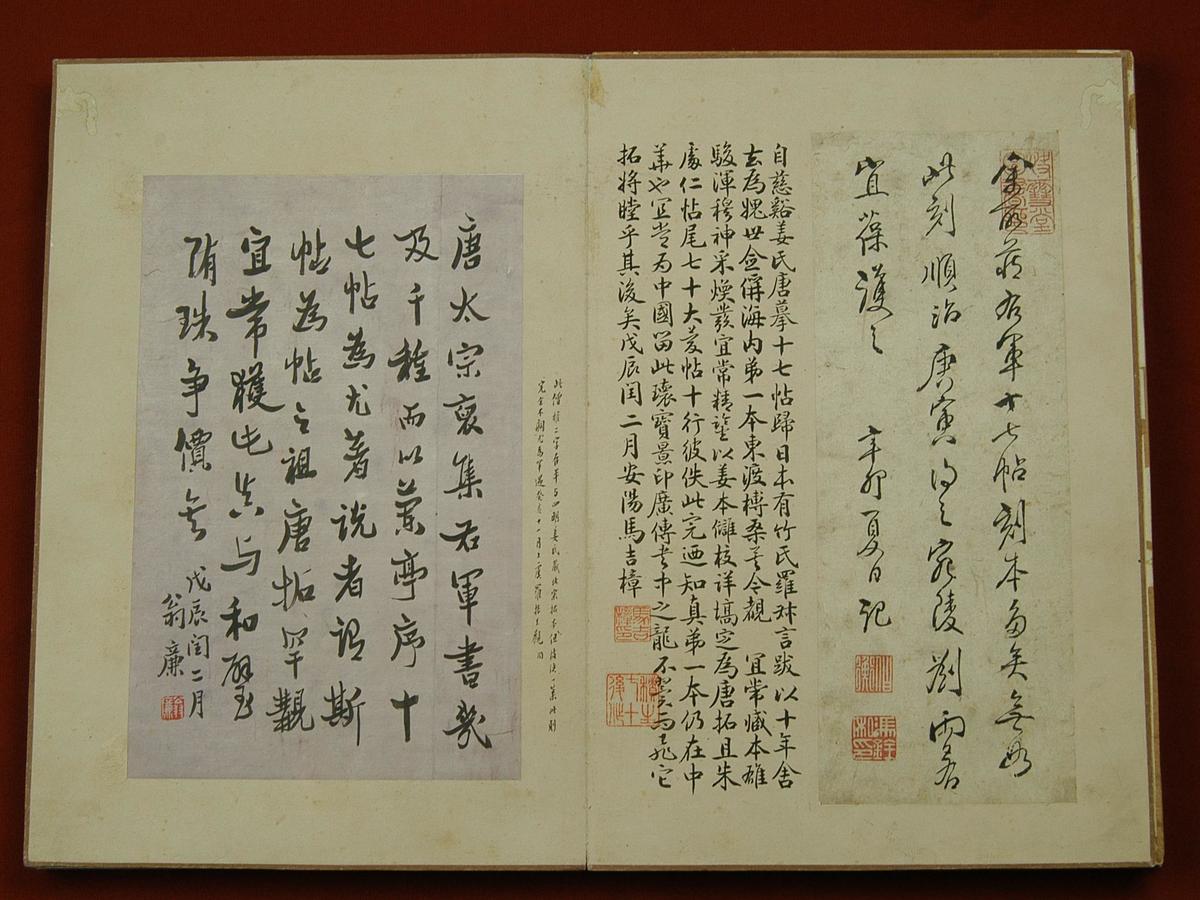 余所蓄右軍十七帖刻本多矣無如
此刻順治庚寅得之宛陵劉雨若
宜葆護之 辛卯夏日記
自慈谿姜氏唐摹十七帖歸日本有竹氏羅叔言跋以十年舍
去為媿世僉偁海內弟一本東渡榑桑今覩宜常藏本雄
駿渾穆神采煥發宜常精鑒以姜本讎校詳塙定為唐拓且朱
處仁帖尾七十大慶帖十行彼佚此完迺知真弟一本仍在中
華也宜常為中國留此瓌寶景印廣傳書中之龍不翼而飛它
拓將瞠乎其後矣戊辰閏二月安陽馬吉樟
唐太宗裒集右軍書幾
及千種而以蘭亭序十
七帖為尤著說者謂斯
帖為帖之祖唐拓罕覯
宜常獲此真与和璧
隋珠爭價矣
戊辰閏二月
翁廉